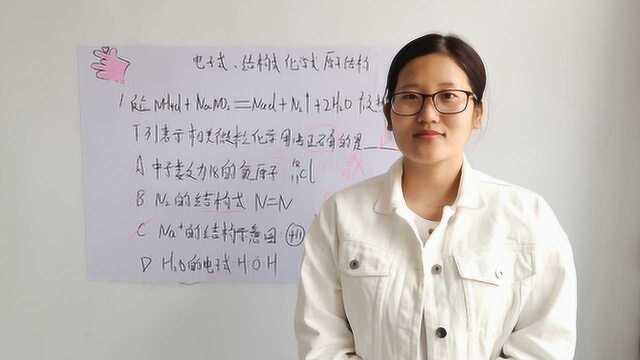 电子式、结构式化学式 原子结构
1 反应 NH4Cl+NaNO2=NaCl+N2↑+2H2O
下列表示相关微粒化学用语正确的是
A 中子数为18的氯原子 Cl
B N2的结构式 N=N
C Na+的结构示意图 +11
D H2O的电子式 H O H